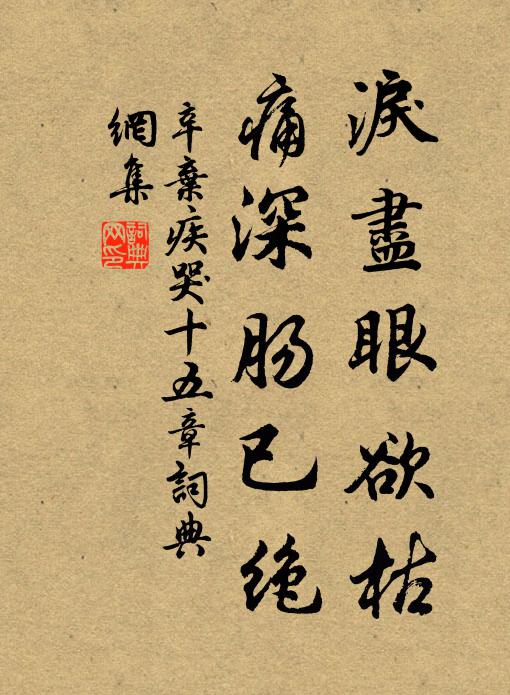 淚盡眼欲枯
痛深腸已絕
辛棄疾哭十五章詞典
網集
詞典
网印